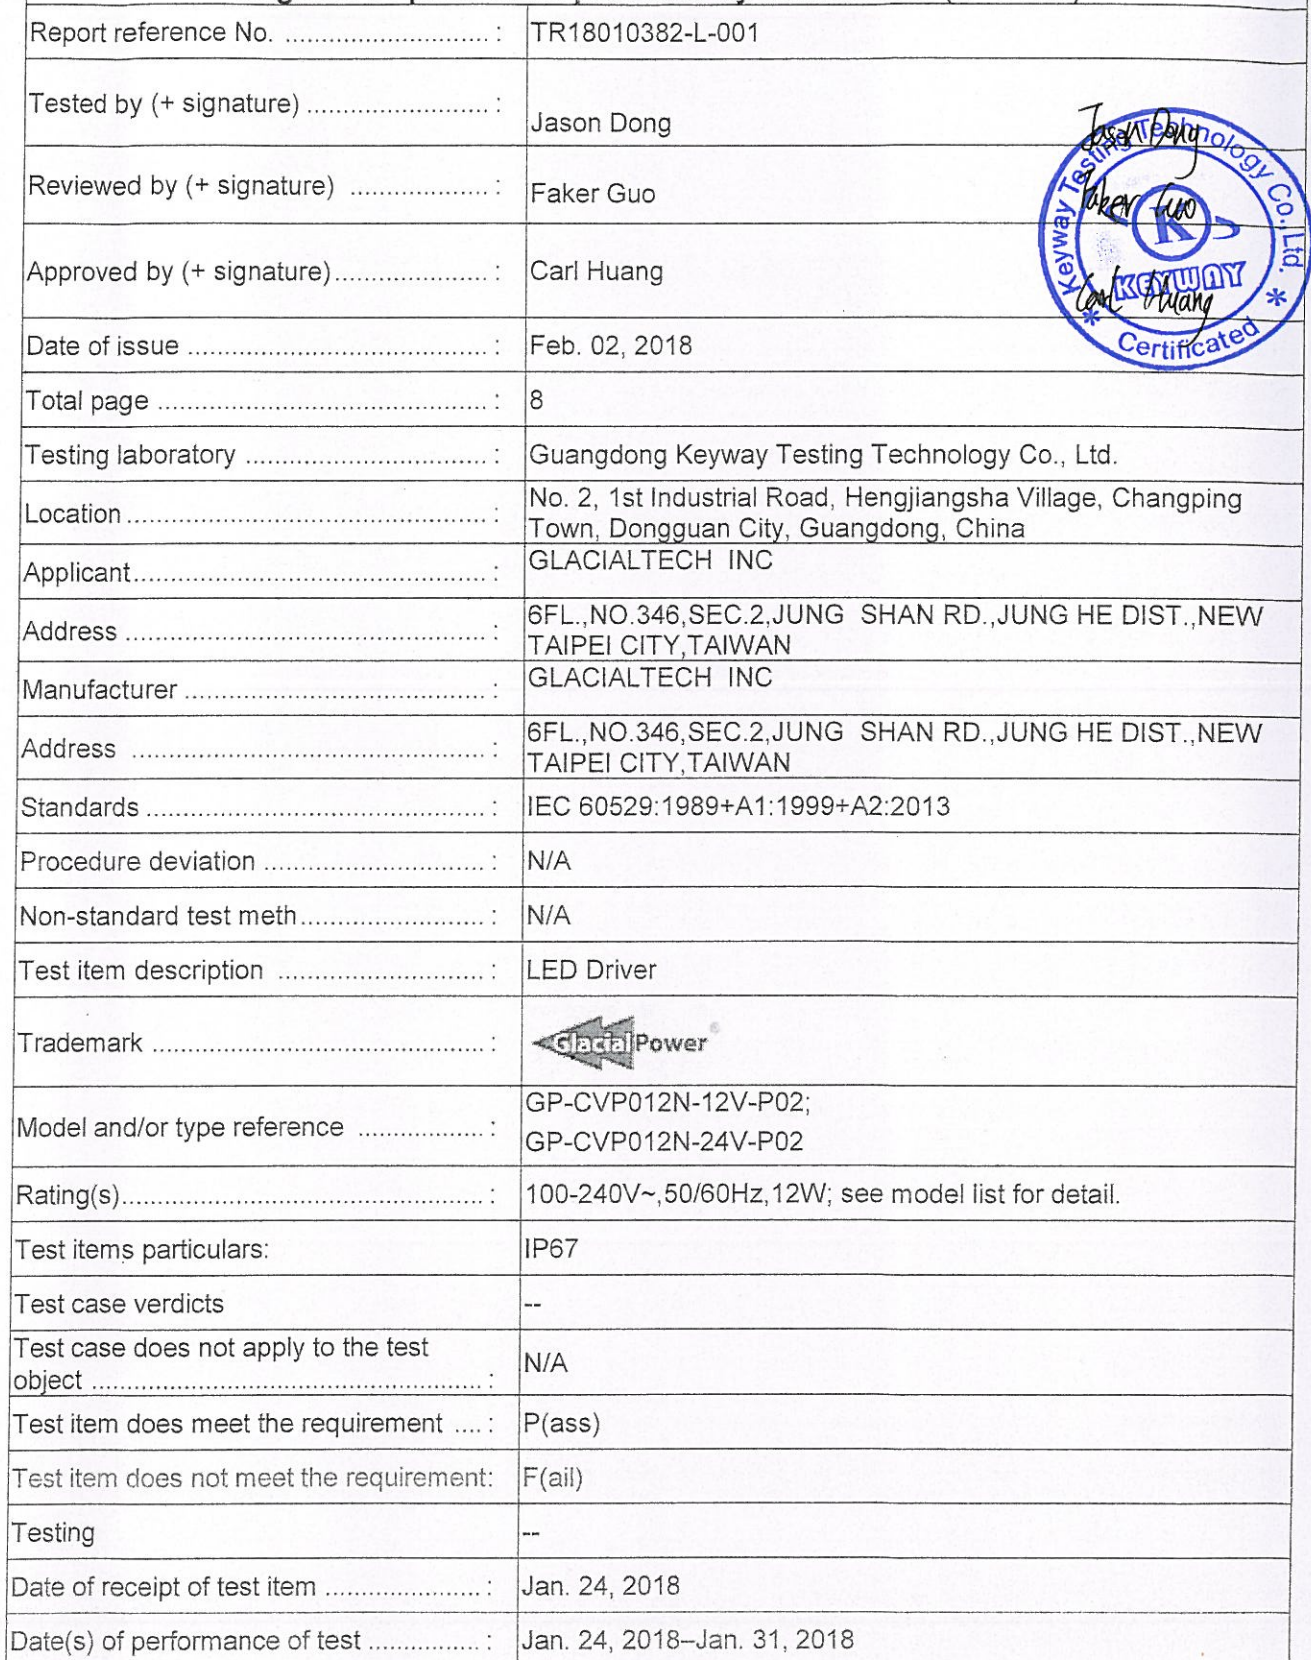 Report reference No. ............................ : TR18010382-L-001
Tested by (+ signature) ......................... : Jason Dong
Reviewed by (+ signature) ................... : Faker Guo
Approved by (+ signature)..................... : Carl Huang
Jason Dong
Faker Guo
Carl Huang
Keyway Testing Technology Co., Ltd.
K
KEYWAY
* Certificated *
Date of issue ......................................... : Feb. 02, 2018
Total page ............................................. : 8
Testing laboratory ................................. : Guangdong Keyway Testing Technology Co., Ltd.
Location ................................................. : No. 2, 1st Industrial Road, Hengjiangsha Village, Changping
Town, Dongguan City, Guangdong, China
Applicant................................................ : GLACIALTECH INC
Address ................................................. : 6FL.,NO.346,SEC.2,JUNG SHAN RD.,JUNG HE DIST.,NEW
TAIPEI CITY,TAIWAN
Manufacturer ......................................... : GLACIALTECH INC
Address ................................................ : 6FL.,NO.346,SEC.2,JUNG SHAN RD.,JUNG HE DIST.,NEW
TAIPEI CITY,TAIWAN
Standards .............................................. : IEC 60529:1989+A1:1999+A2:2013
Procedure deviation .............................. : N/A
Non-standard test meth......................... : N/A
Test item description ............................ : LED Driver
Trademark ............................................. : GlacialPower®
Model and/or type reference ................. : GP-CVP012N-12V-P02;
GP-CVP012N-24V-P02
Rating(s)................................................. : 100-240V~,50/60Hz,12W; see model list for detail.
Test items particulars: IP67
Test case verdicts --
Test case does not apply to the test
object ..................................................... : N/A
Test item does meet the requirement .... : P(ass)
Test item does not meet the requirement: F(ail)
Testing --
Date of receipt of test item ..................... : Jan. 24, 2018
Date(s) of performance of test ............... : Jan. 24, 2018–Jan. 31, 2018